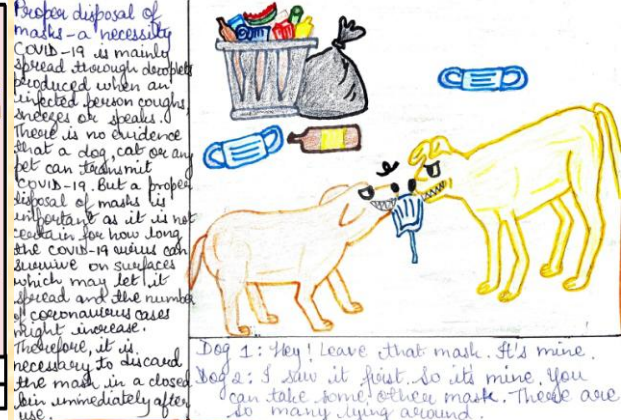 Proper disposal of
masks - a necessity
COVID-19 is mainly
spread through droplets
produced when an
infected person coughs,
sneezes or speaks.
There is no evidence
that a dog, cat or any
pet can transmit
COVID-19. But a proper
disposal of masks is
important as it is not
certain for how long
the COVID-19 virus can
survive on surfaces
which may let it
spread and the number
of coronavirus cases
might increase.
Therefore, it is
necessary to discard
the mask in a closed
bin immediately after
use.
Dog 1: Hey! Leave that mask. It's mine.
Dog 2: I saw it first. So its mine. You
can take some other mask. There are
so many lying around.